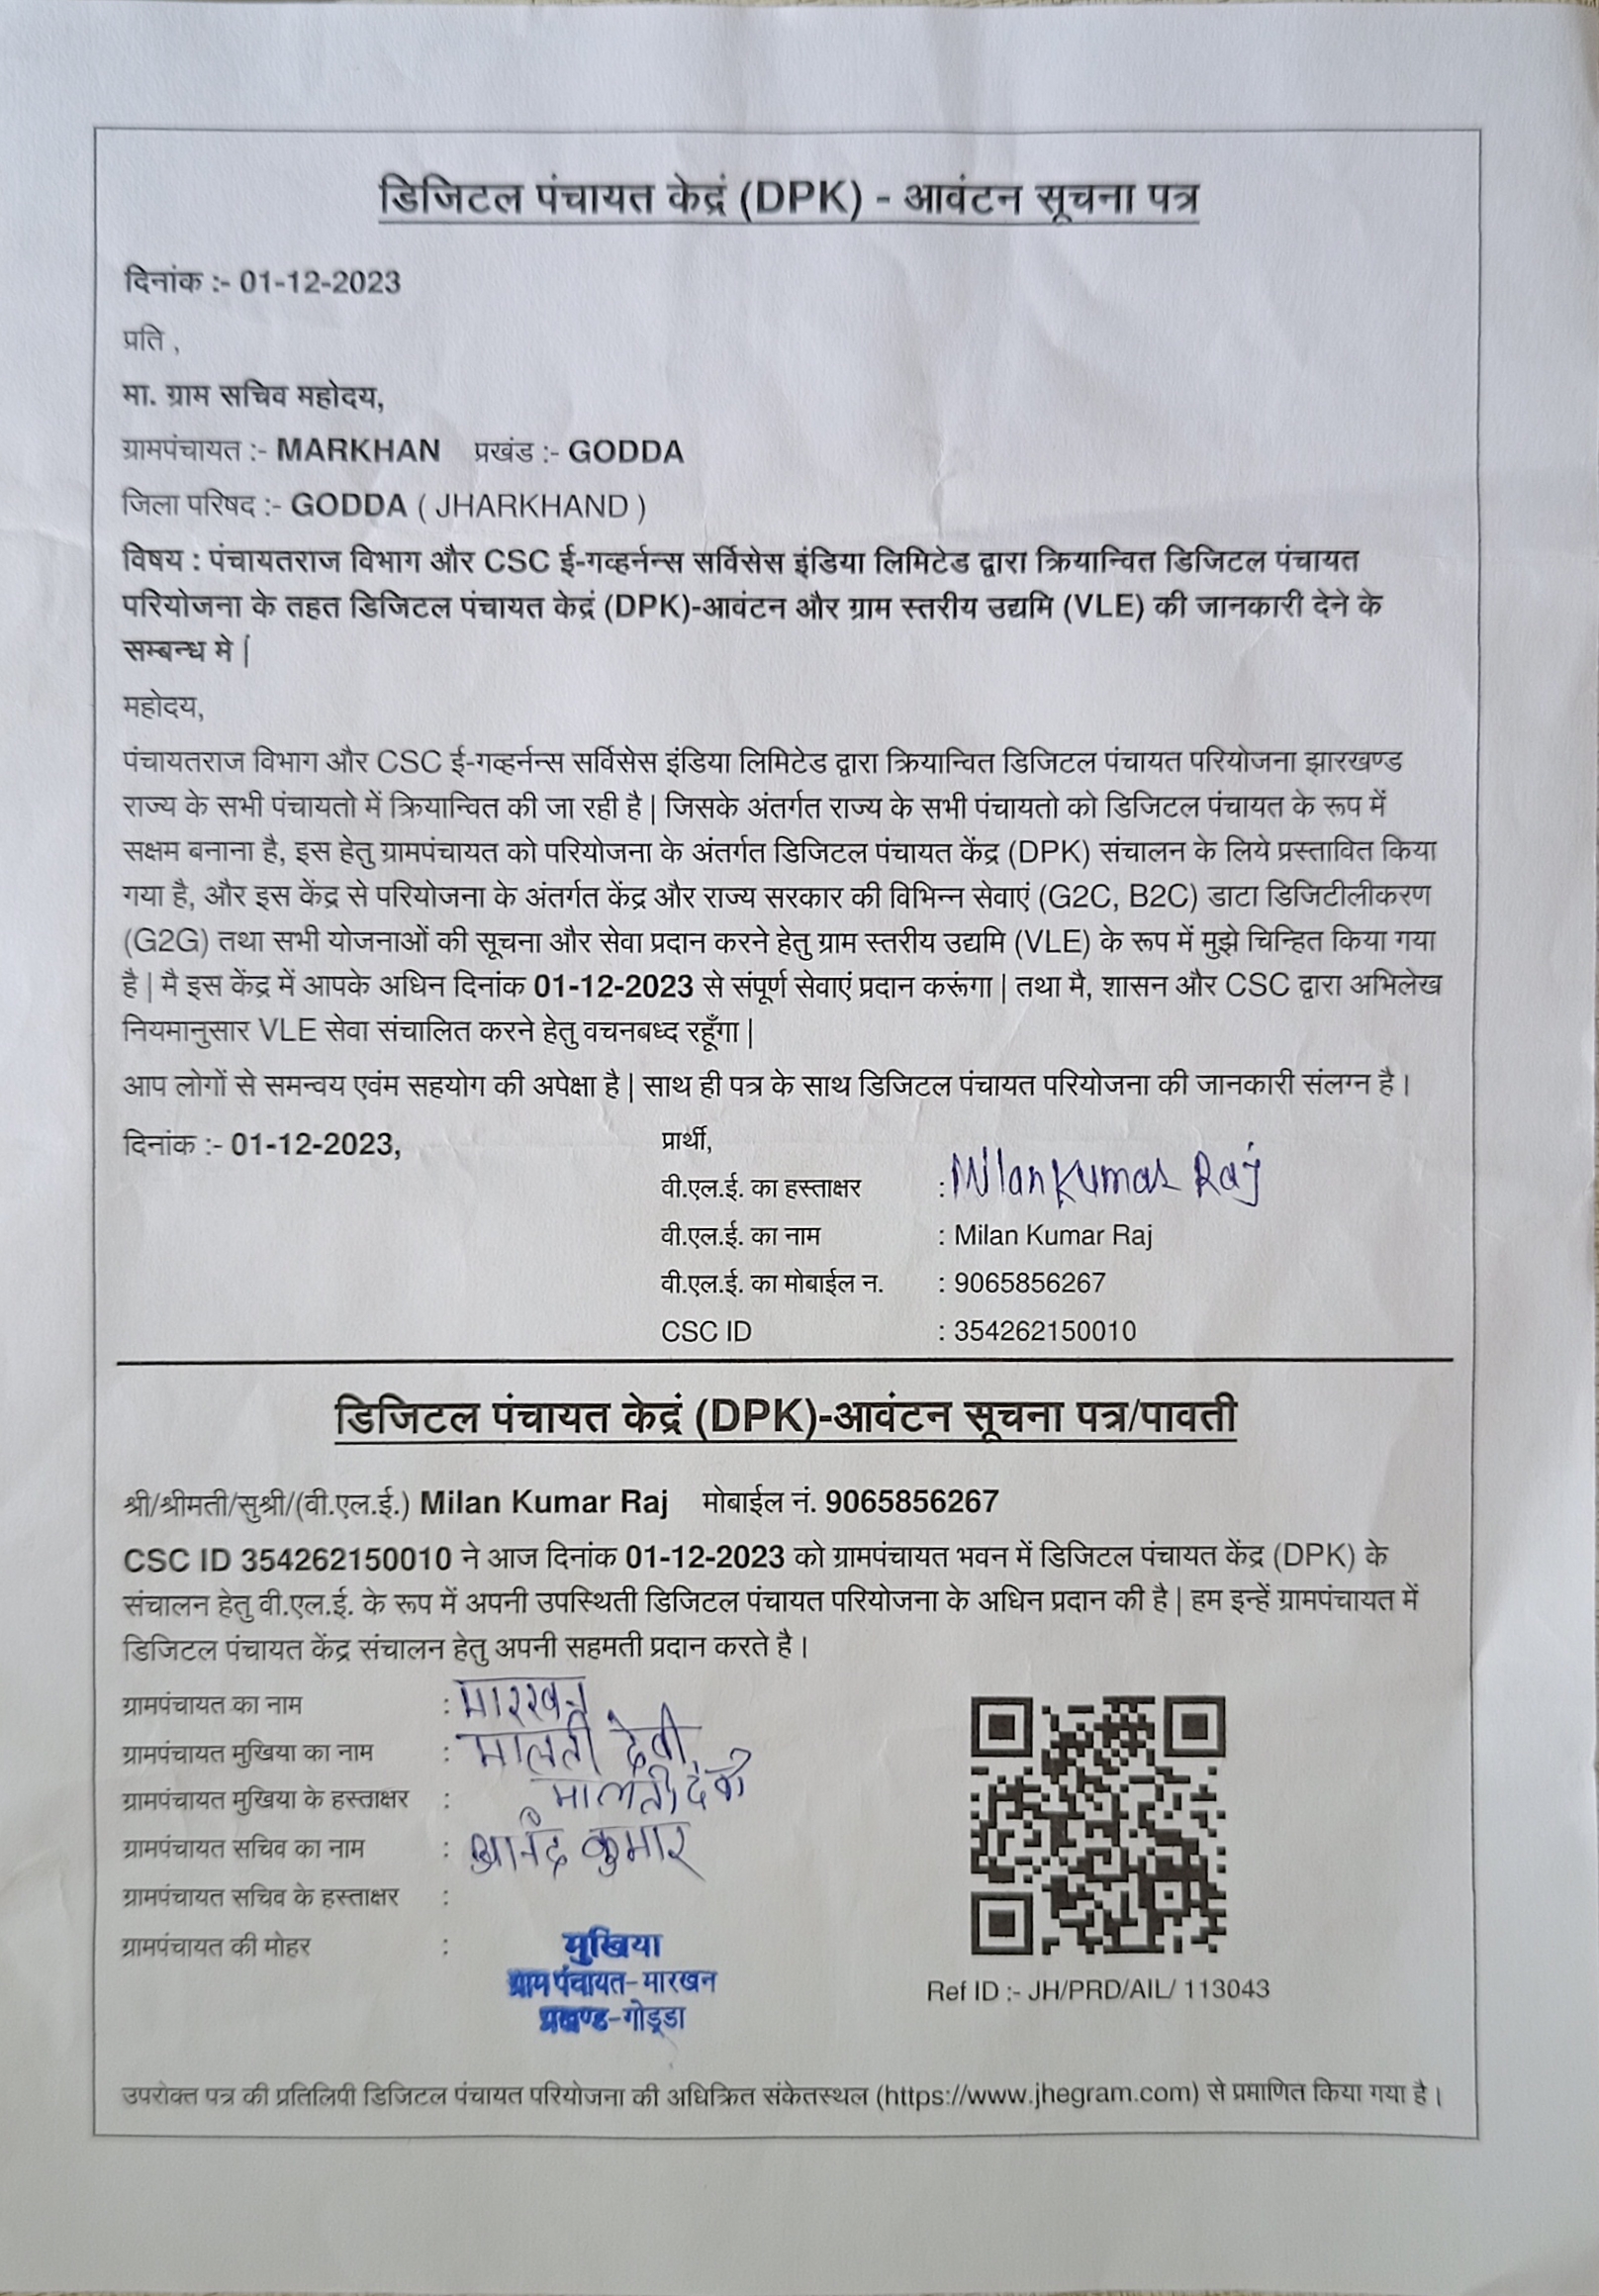 डिजिटल पंचायत केद्रं (DPK) - आवंटन सूचना पत्र
दिनांक :- 01-12-2023
प्रति ,
मा. ग्राम सचिव महोदय,
ग्रामपंचायत :- MARKHAN प्रखंड :- GODDA
जिला परिषद :- GODDA ( JHARKHAND )
विषय : पंचायतराज विभाग और CSC ई-गव्हर्नन्स सर्विसेस इंडिया लिमिटेड द्वारा क्रियान्वित डिजिटल पंचायत
परियोजना के तहत डिजिटल पंचायत केद्रं (DPK)-आवंटन और ग्राम स्तरीय उद्यमि (VLE) की जानकारी देने के
सम्बन्ध मे |
महोदय,
पंचायतराज विभाग और CSC ई-गव्हर्नन्स सर्विसेस इंडिया लिमिटेड द्वारा क्रियान्वित डिजिटल पंचायत परियोजना झारखण्ड
राज्य के सभी पंचायतो में क्रियान्वित की जा रही है | जिसके अंतर्गत राज्य के सभी पंचायतो को डिजिटल पंचायत के रूप में
सक्षम बनाना है, इस हेतु ग्रामपंचायत को परियोजना के अंतर्गत डिजिटल पंचायत केंद्र (DPK) संचालन के लिये प्रस्तावित किया
गया है, और इस केंद्र से परियोजना के अंतर्गत केंद्र और राज्य सरकार की विभिन्न सेवाएं (G2C, B2C) डाटा डिजिटीलीकरण
(G2G) तथा सभी योजनाओं की सूचना और सेवा प्रदान करने हेतु ग्राम स्तरीय उद्यमि (VLE) के रूप में मुझे चिन्हित किया गया
है | मै इस केंद्र में आपके अधिन दिनांक 01-12-2023 से संपूर्ण सेवाएं प्रदान करूंगा | तथा मै, शासन और CSC द्वारा अभिलेख
नियमानुसार VLE सेवा संचालित करने हेतु वचनबध्द रहूँगा |
आप लोगों से समन्वय एवंम सहयोग की अपेक्षा है | साथ ही पत्र के साथ डिजिटल पंचायत परियोजना की जानकारी संलग्न है।
दिनांक :- 01-12-2023, प्रार्थी,
वी.एल.ई. का हस्ताक्षर : Milan Kumar Raj
वी.एल.ई. का नाम : Milan Kumar Raj
वी.एल.ई. का मोबाईल न. : 9065856267
CSC ID : 354262150010
डिजिटल पंचायत केद्रं (DPK)-आवंटन सूचना पत्र/पावती
श्री/श्रीमती/सुश्री/(वी.एल.ई.) Milan Kumar Raj मोबाईल नं. 9065856267
CSC ID 354262150010 ने आज दिनांक 01-12-2023 को ग्रामपंचायत भवन में डिजिटल पंचायत केंद्र (DPK) के
संचालन हेतु वी.एल.ई. के रूप में अपनी उपस्थिती डिजिटल पंचायत परियोजना के अधिन प्रदान की है | हम इन्हें ग्रामपंचायत में
डिजिटल पंचायत केंद्र संचालन हेतु अपनी सहमती प्रदान करते है।
ग्रामपंचायत का नाम : मारखन
ग्रामपंचायत मुखिया का नाम : मालती देवी
ग्रामपंचायत मुखिया के हस्ताक्षर : मालती देवी
ग्रामपंचायत सचिव का नाम : आनंद कुमार
ग्रामपंचायत सचिव के हस्ताक्षर :
ग्रामपंचायत की मोहर :
मुखिया
ग्राम पंचायत-मारखन
प्रखण्ड-गोड्डा
Ref ID :- JH/PRD/AIL/ 113043
उपरोक्त पत्र की प्रतिलिपी डिजिटल पंचायत परियोजना की अधिक्रित संकेतस्थल (https://www.jhegram.com) से प्रमाणित किया गया है।